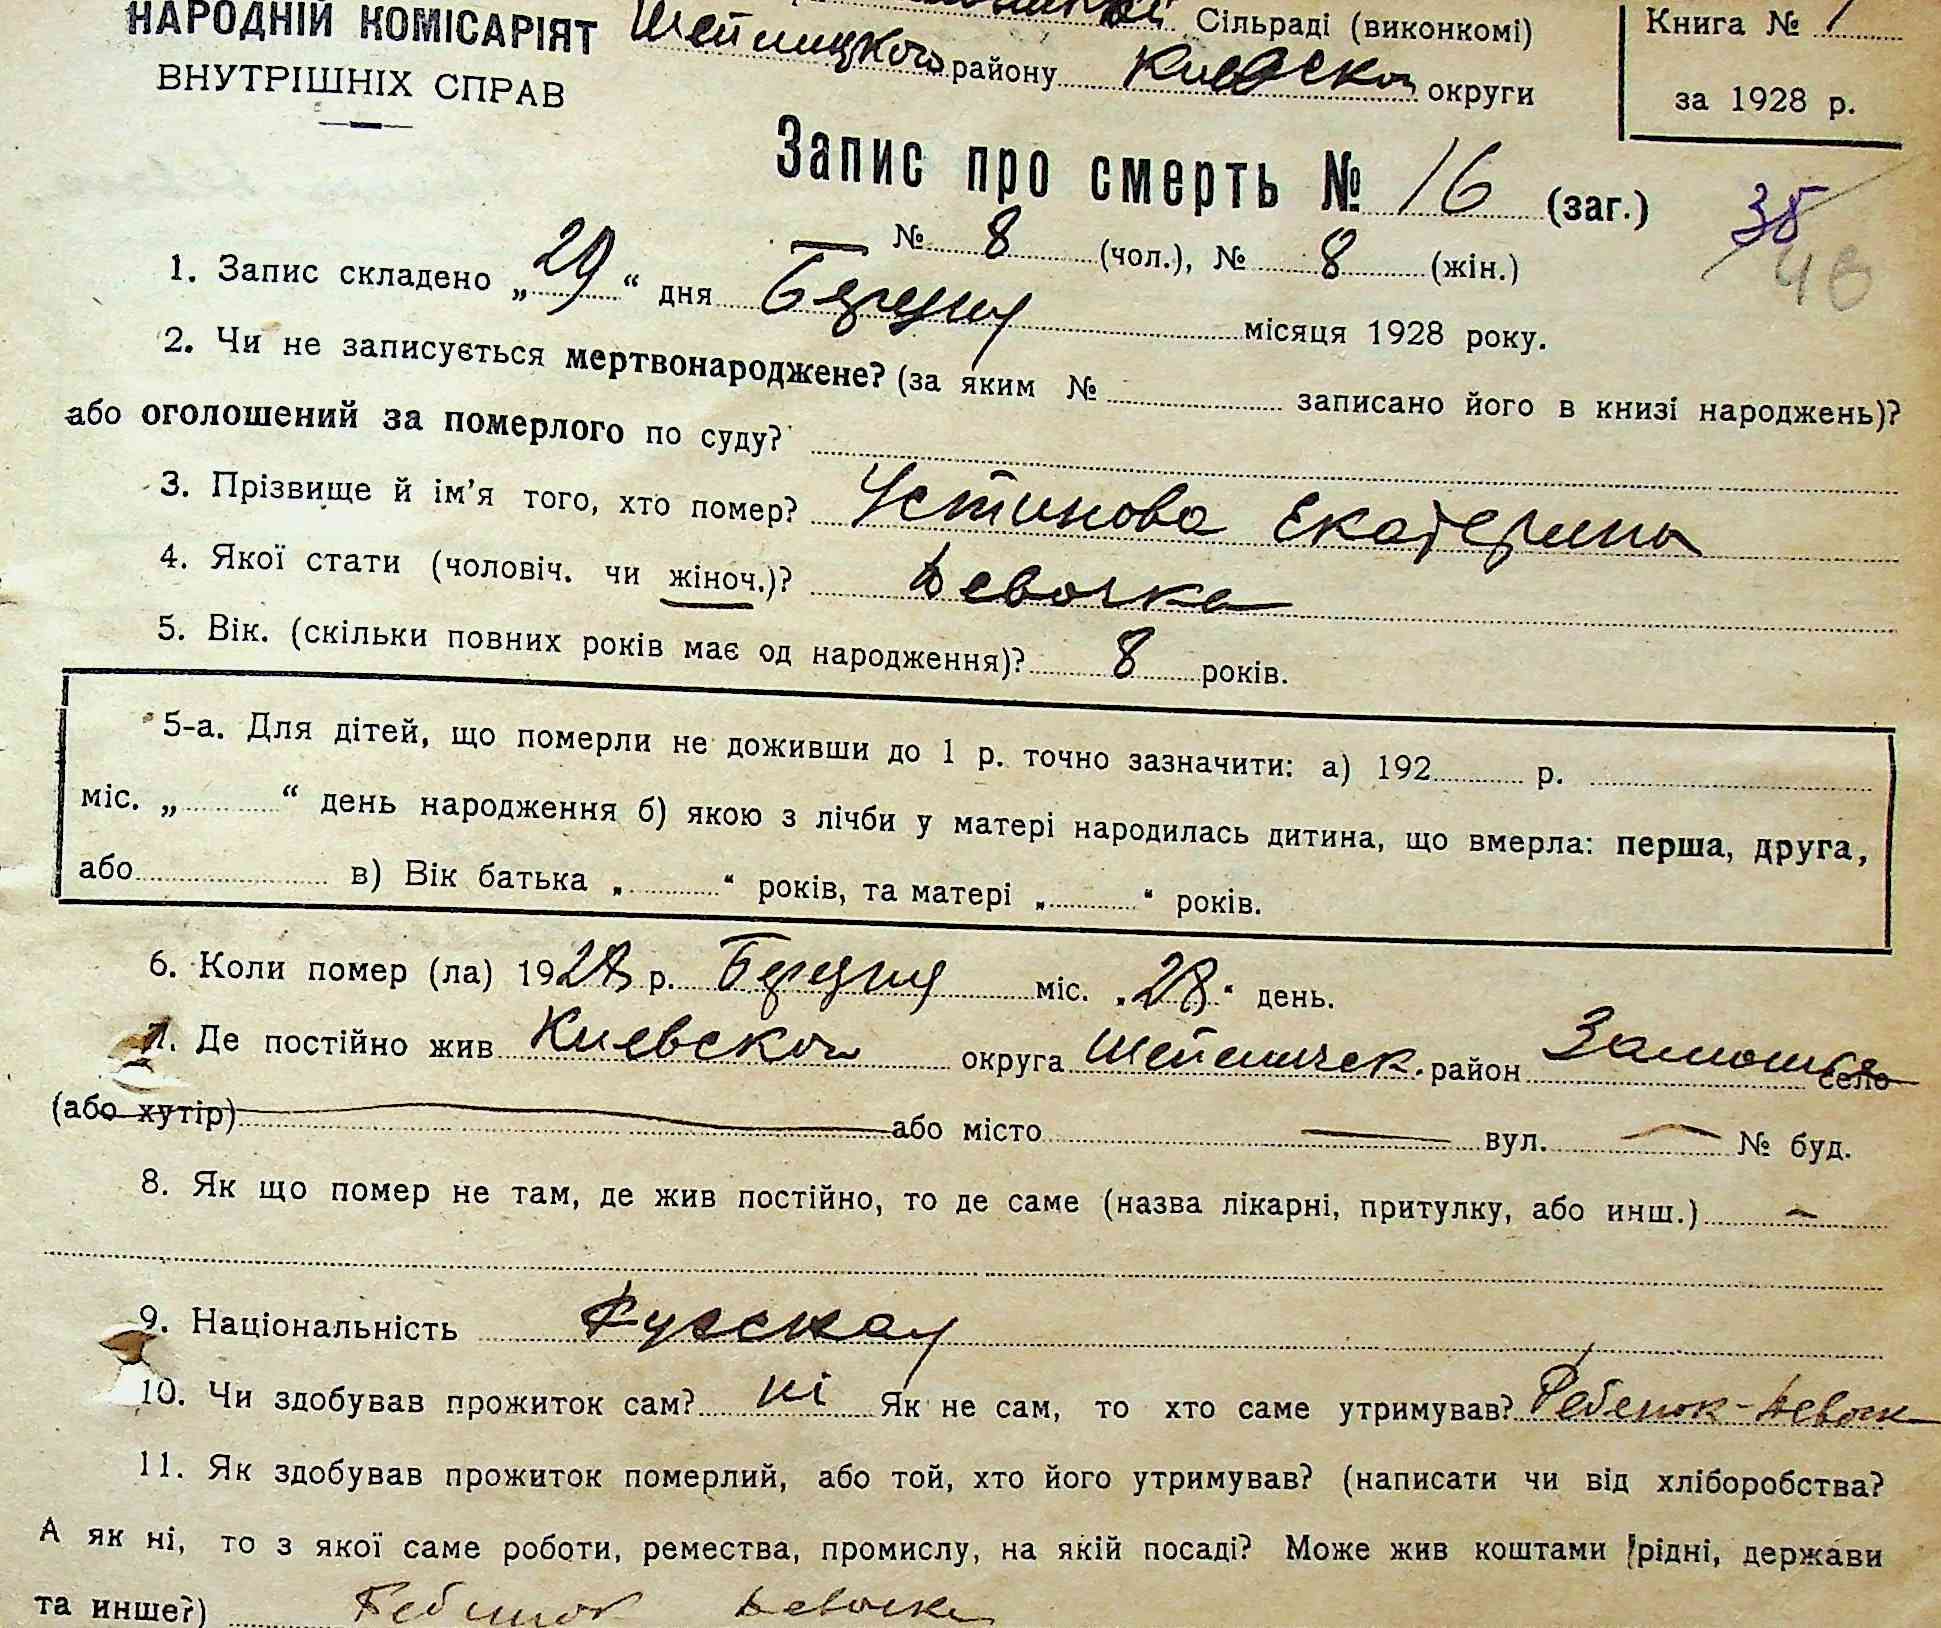 НАРОДНІЙ КОМІСАРІЯТ
ВНУТРІШНІХ СПРАВ
Сільраді (виконкомі)
району Киевской округи
Книга № 1
за 1928 р.
Запис про смерть № 16 (заг.)
№ 8 (чол.), № 8 (жін.)
35
48
1. Запис складено „29“ дня Березня місяця 1928 року.
2. Чи не записується мертвонароджене? (за яким № записано його в книзі народжень)?
або оголошений за померлого по суду?
3. Прізвище й ім’я того, хто помер? Устинова Екатерина
4. Якої стати (чоловіч. чи жіноч.)? Девочка
5. Вік. (скільки повних років має од народження)? 8 років.
5-а. Для дітей, що померли не доживши до 1 р. точно зазначити: а) 192 р.
міс. „ “ день народження б) якою з лічби у матері народилась дитина, що вмерла: перша, друга,
або в) Вік батька „ “ років, та матері „ “ років.
6. Коли помер (ла) 1928 р. Березня міс. „28“ день.
7. Де постійно жив Киевской округа район Замошня село
(або хутір) або місто вул. № буд.
8. Як що помер не там, де жив постійно, то де саме (назва лікарні, притулку, або инш.) –
9. Національність Русская
10. Чи здобував прожиток сам? ні Як не сам, то хто саме утримував? Ребенок-девочк
11. Як здобував прожиток померлий, або той, хто його утримував? (написати чи від хліборобства?
А як ні, то з якої саме роботи, ремества, промислу, на якій посаді? Може жив коштами рідні, держави
та инше?) Ребенок девочка